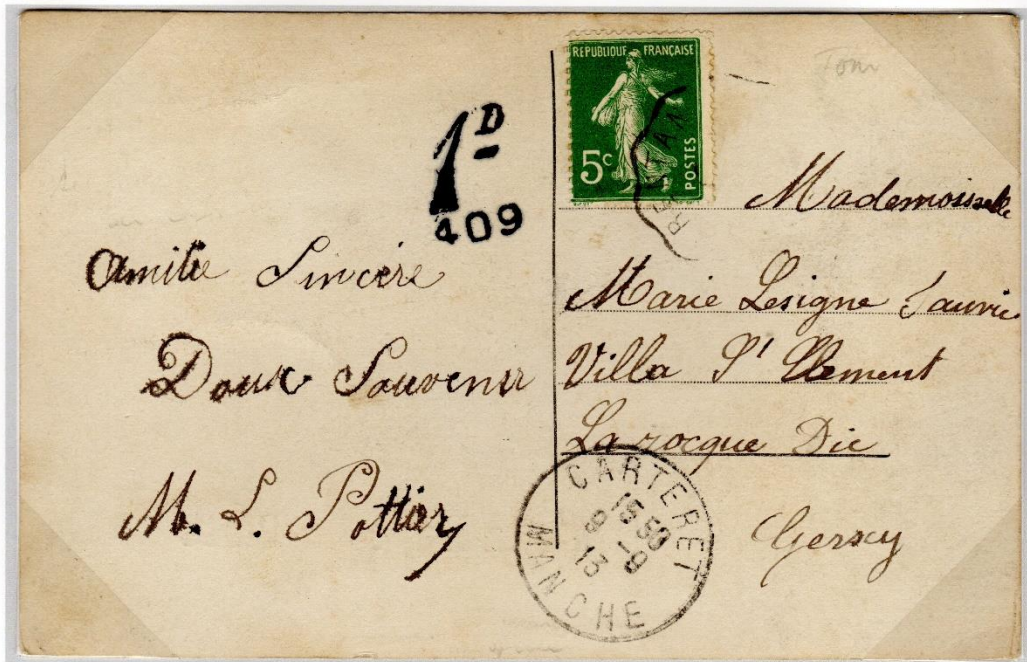 REPUBLIQUE FRANÇAISE
5c
POSTES
1D
409
Amitie Sincère
Doux Souvenir
M. L. Pottier
Mademoiselle
Marie Lesigne
Villa St Clement
La rocque Dic
Gersey
CARTERET
15 50
8 - 9
13
MANCHE